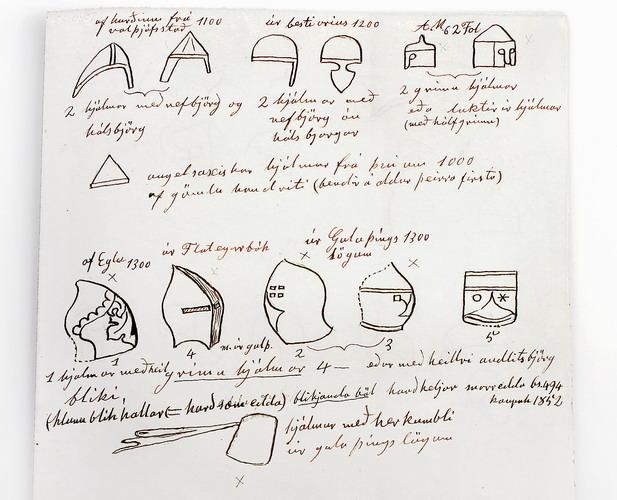 af hurðinni frá 1100
valþjófsstað
úr bestiarius 1200
A.M. 62 Fol
2 hjálmar með nefbjörg og
hálsbjörg
2 hjálmar með
nefbjörg án
hálsbjargar
2 grímu hjálmar
eða luktir hjálmar
(með hálfgrímu)
angelsaxiskar hjálmur frá því um 1000
af gömlu handriti (bendir á aldur þeirra fyrstu)
af Eglu 1300
úr Flateyarbók
úr Gulaþings 1300
lögum
1
4
m. úr gulþ.
2
3
5
1 hjálmar með heil grímu hjálmar 4 — eða með heilli andlitsbjörg
bliki,
hallar (= edda) blikjanda böl snorredda bs. 494
kaupmh 1852
hjálmar með herkumbli
úr gula þings lögum